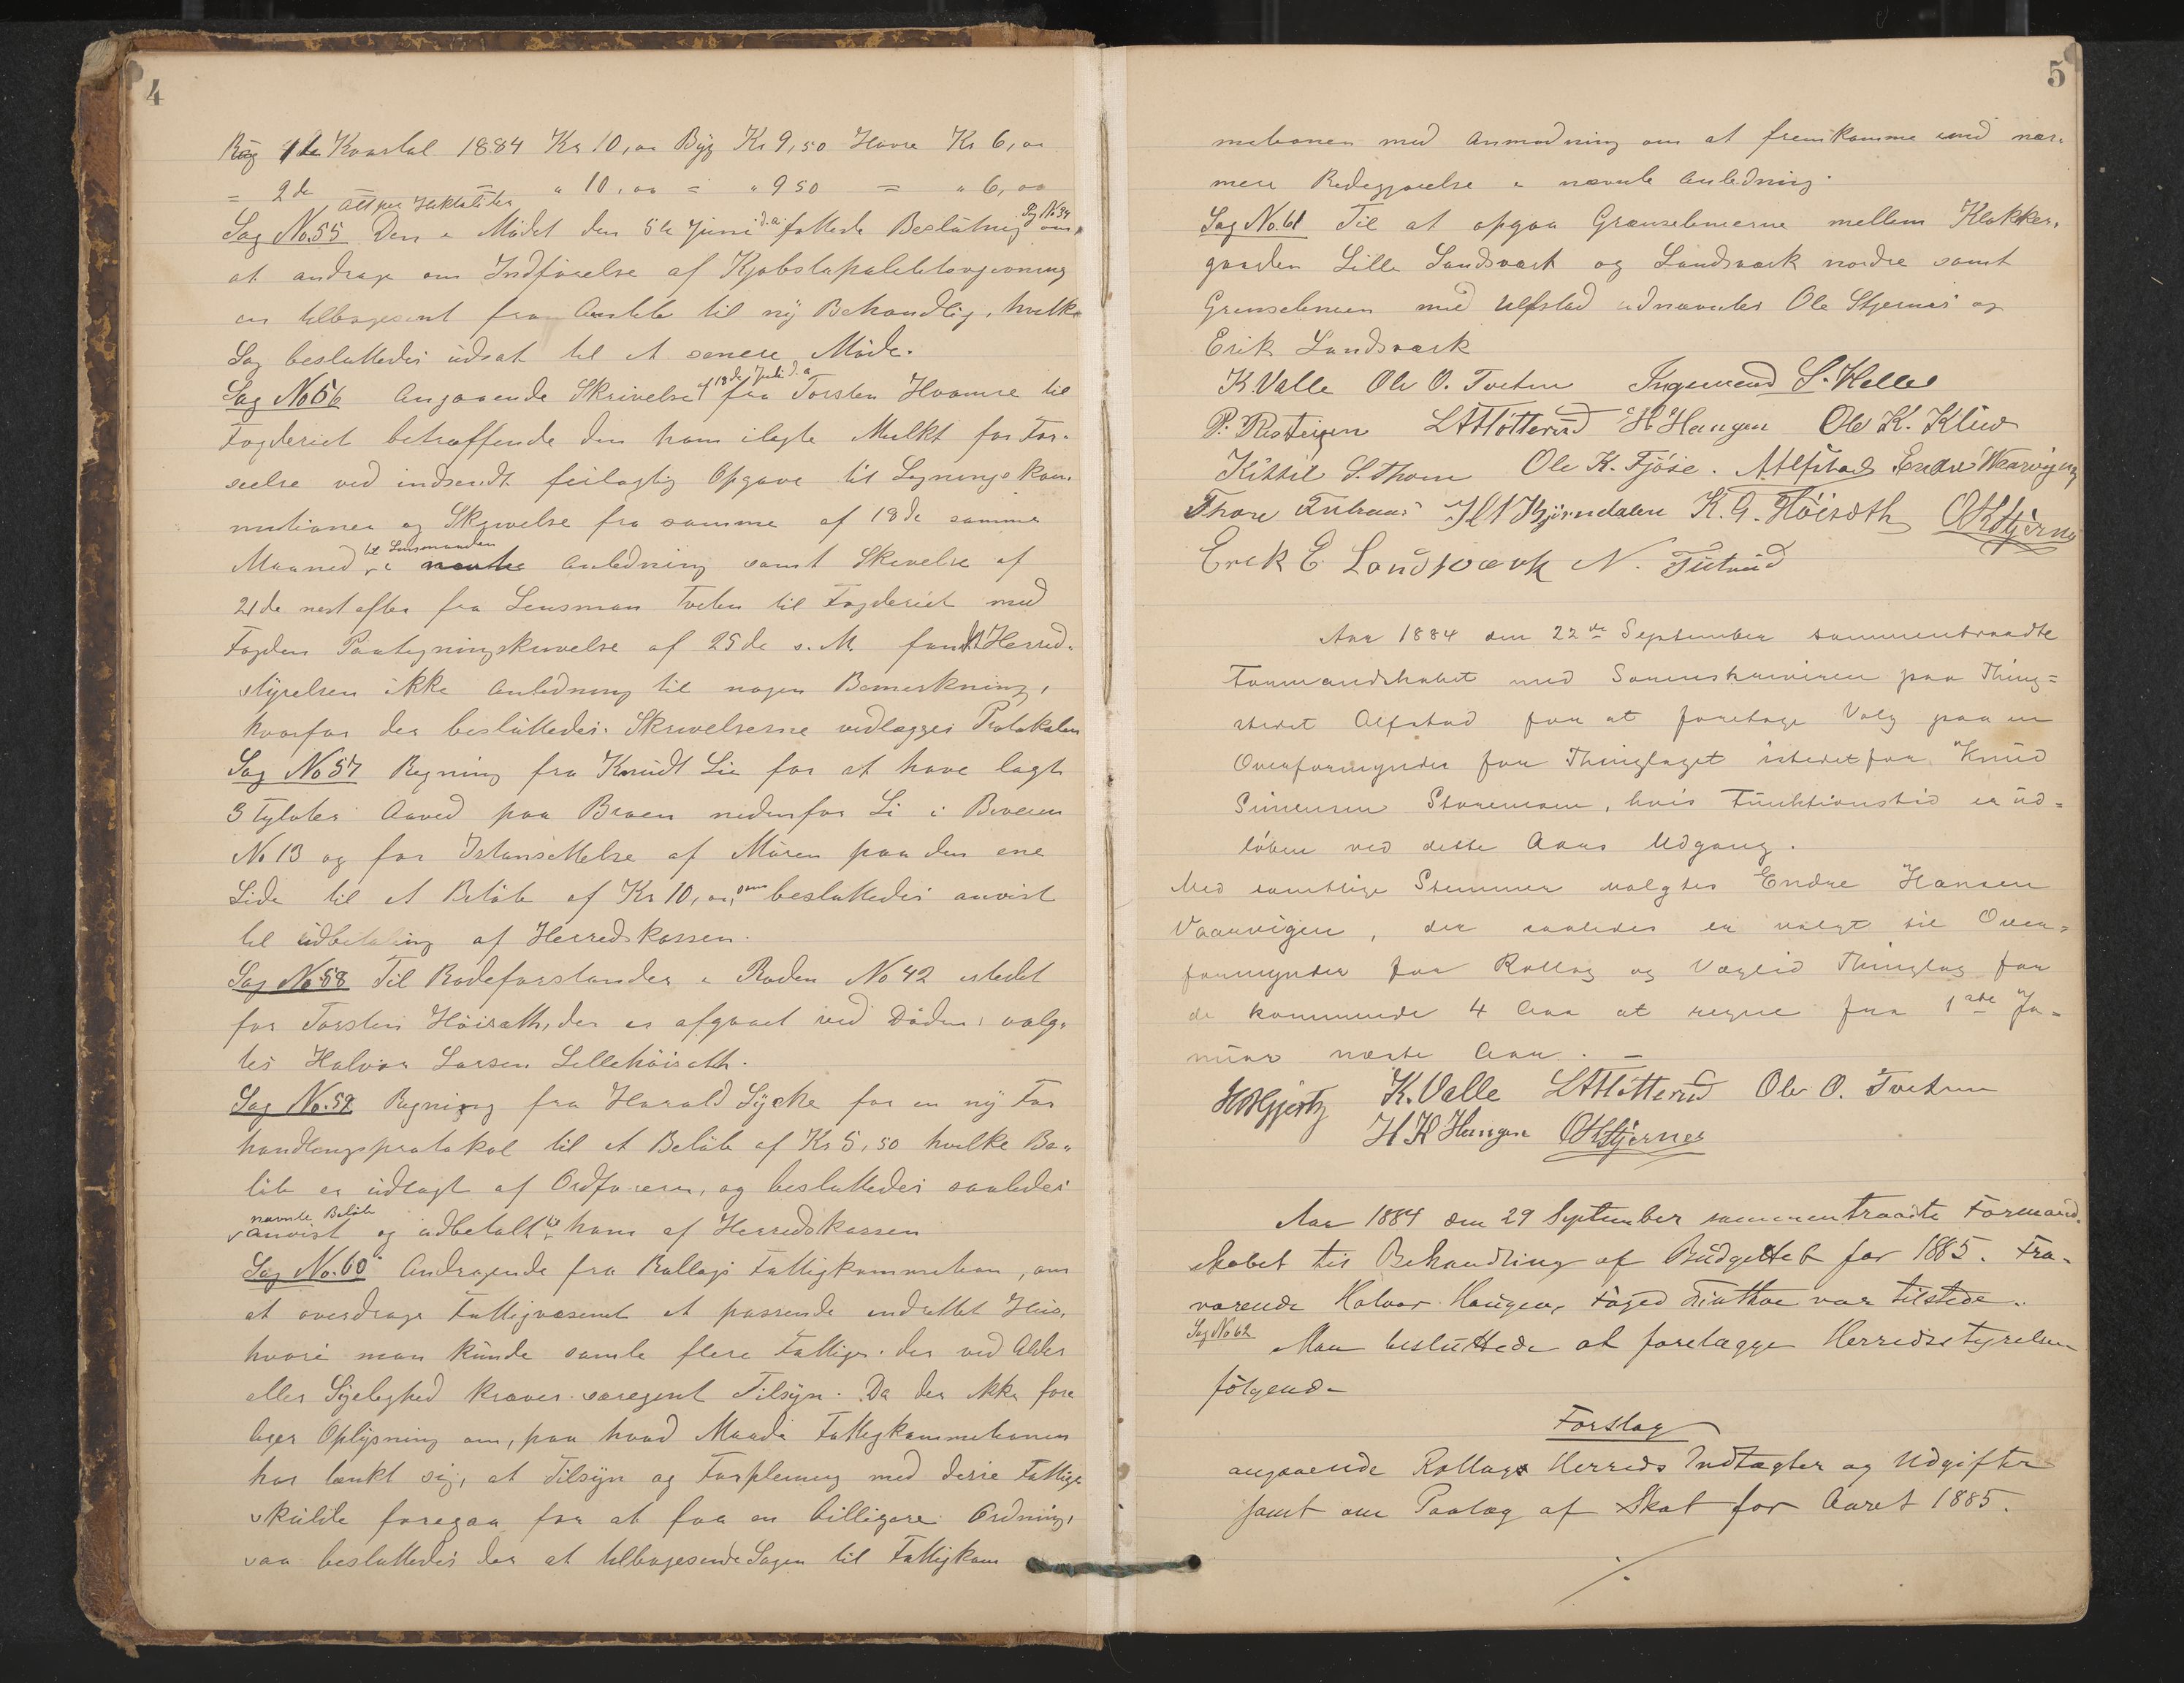 4
Rug 1ste Kvartal 1884 Kr 10,00 Byg Kr 9,50 Havre Kr 6,00
= 2de = " 10,00 = " 9 50 = " 6,00
Alt per Hektoliter
Sag No. 55 Den i Mödet den 5te Juni d.A. fattede Beslutning Sag No 34 om
at andrage om Indförelse af
er tilbagesent fra Amtet til ny Behandlig, hvilke
Sag besluttedes udsat til et senere Möde.
Sag No 56 Angaaende Skrivelse af 18de Juli d.a fra Torsten Hvamre til
Fogderiet betræffende den ham ilagte Mulkt for For-
seelse ved indsendt feilagtig Opgave til Ligningskom-
missionen og Skrivelse fra samme af 18de samme
Maaned til Lensmanden i nævnte Anledning samt Skrivelse af
21de nest efter fra Lensman Tveten til Fogderiet med
Fogdens Paategningskrivelse af 25de s.M. fandt Herred-
styrelsen ikke Anledning til nogen Bemerkning,
hvorfor der besluttedes: Skrivelserne vedlægges Protokolen
Sag No 57 Regning fra Knudt Lie for at have lagt
3 Tylvter Aaved paa Broen nedenfor Li i Boveien
No 13 og for Istansættelse af Muren paa den ene
Side til et Belöb af Kr 10,00, som besluttedes anvist
til udbetaling af Herredskassen.
Sag No. 58 Til Rodeforstander i Roden No 42 istedet
for Torsten Höiseth, der er afgaaet ved Döden, valg-
tes Halvor Larsen Lillehöiseth.
Sag No. 59 Regning fra Harald Lyche for en ny For
handlingsprotokol til et Belöb af Kr 5,50 hvilke Be-
löb er udlagt af Ordföreren, og besluttedes saaledes
nævnte Belöb
anvist og udbetalt til ham af Herredskassen
Sag No. 60 Andragende fra Rollags Fattigkommission, om
at overdrage Fattigvæsenet et passende indrettet Hus,
hvori man kunde samle flere Fattige, der ved Alder
eller Sygelighed kræver særegent Tilsyn. Da der ikke fore
liger Oplysning om, paa hvad Maade Fattigkommissionen
har tænkt sig, at Tilsyn og Forpleining med disse Fattige
skulde foregaa for at faa en billigere Ordning,
saa besluttedes der at tilbagesende Sagen til Fattigkom
5
missionen med Anmodning om at fremkomme med nær-
mere Redegjørelse i nævnte Anledning.
Sag No. 61 Til at opgaa Grænselinierne mellem Klokker-
gaarden Lille Landsværk og Landsværk nordre samt
Grenselinien med Alfstad udnævntes Ole Stjernes og
Erik Landsværk
K. Valle Ole O. Tveten Ingemund S. Helle
P. Risteigen H Haugen Ole K. Kliw
Kittil S. Thom Ole K. Fjöse. Alfstad Endre Waarvigen
Thore Bjørndalen K. G. Höiseth OHStjernes
Erik E. Landsværk N. Tutrud
Aar 1884 den 22de September sammentraadte
Formandskabet med Sorenskriveren paa Thing=
stedet Alfstad for at foretage Valg paa en
Overformynder for Thinglaget istedetfor Knud
Simensen Storemoen, hvis Funktionstid er ud=
löben ved dette Aars Udgang.
Med samtlige Stemmer valgtes Endre Hansen
Vaarvigen, der saaledes er valgt til Over=
formynder for Rollag og Veglid Thinglag for
de kommende 4 Aar at regne fra 1ste Ja=
nuar næste Aar. –
K. Valle Ole O. Tveten
H H Haugen OHStjernes
Aar 1884 den 29 September sammentraadte Formand-
skabet til Behandling af Budgettet for 1885. Fra-
værende Halvor Haugen, Foged var tilstede.
Sag No 62 Man besluttede at forelægge Herredsstyrelsen
fölgende
Forslag
angaaende Rollags Herreds Indtægter og Udgifter
samt om Paalæg af Skat for Aaret 1885.